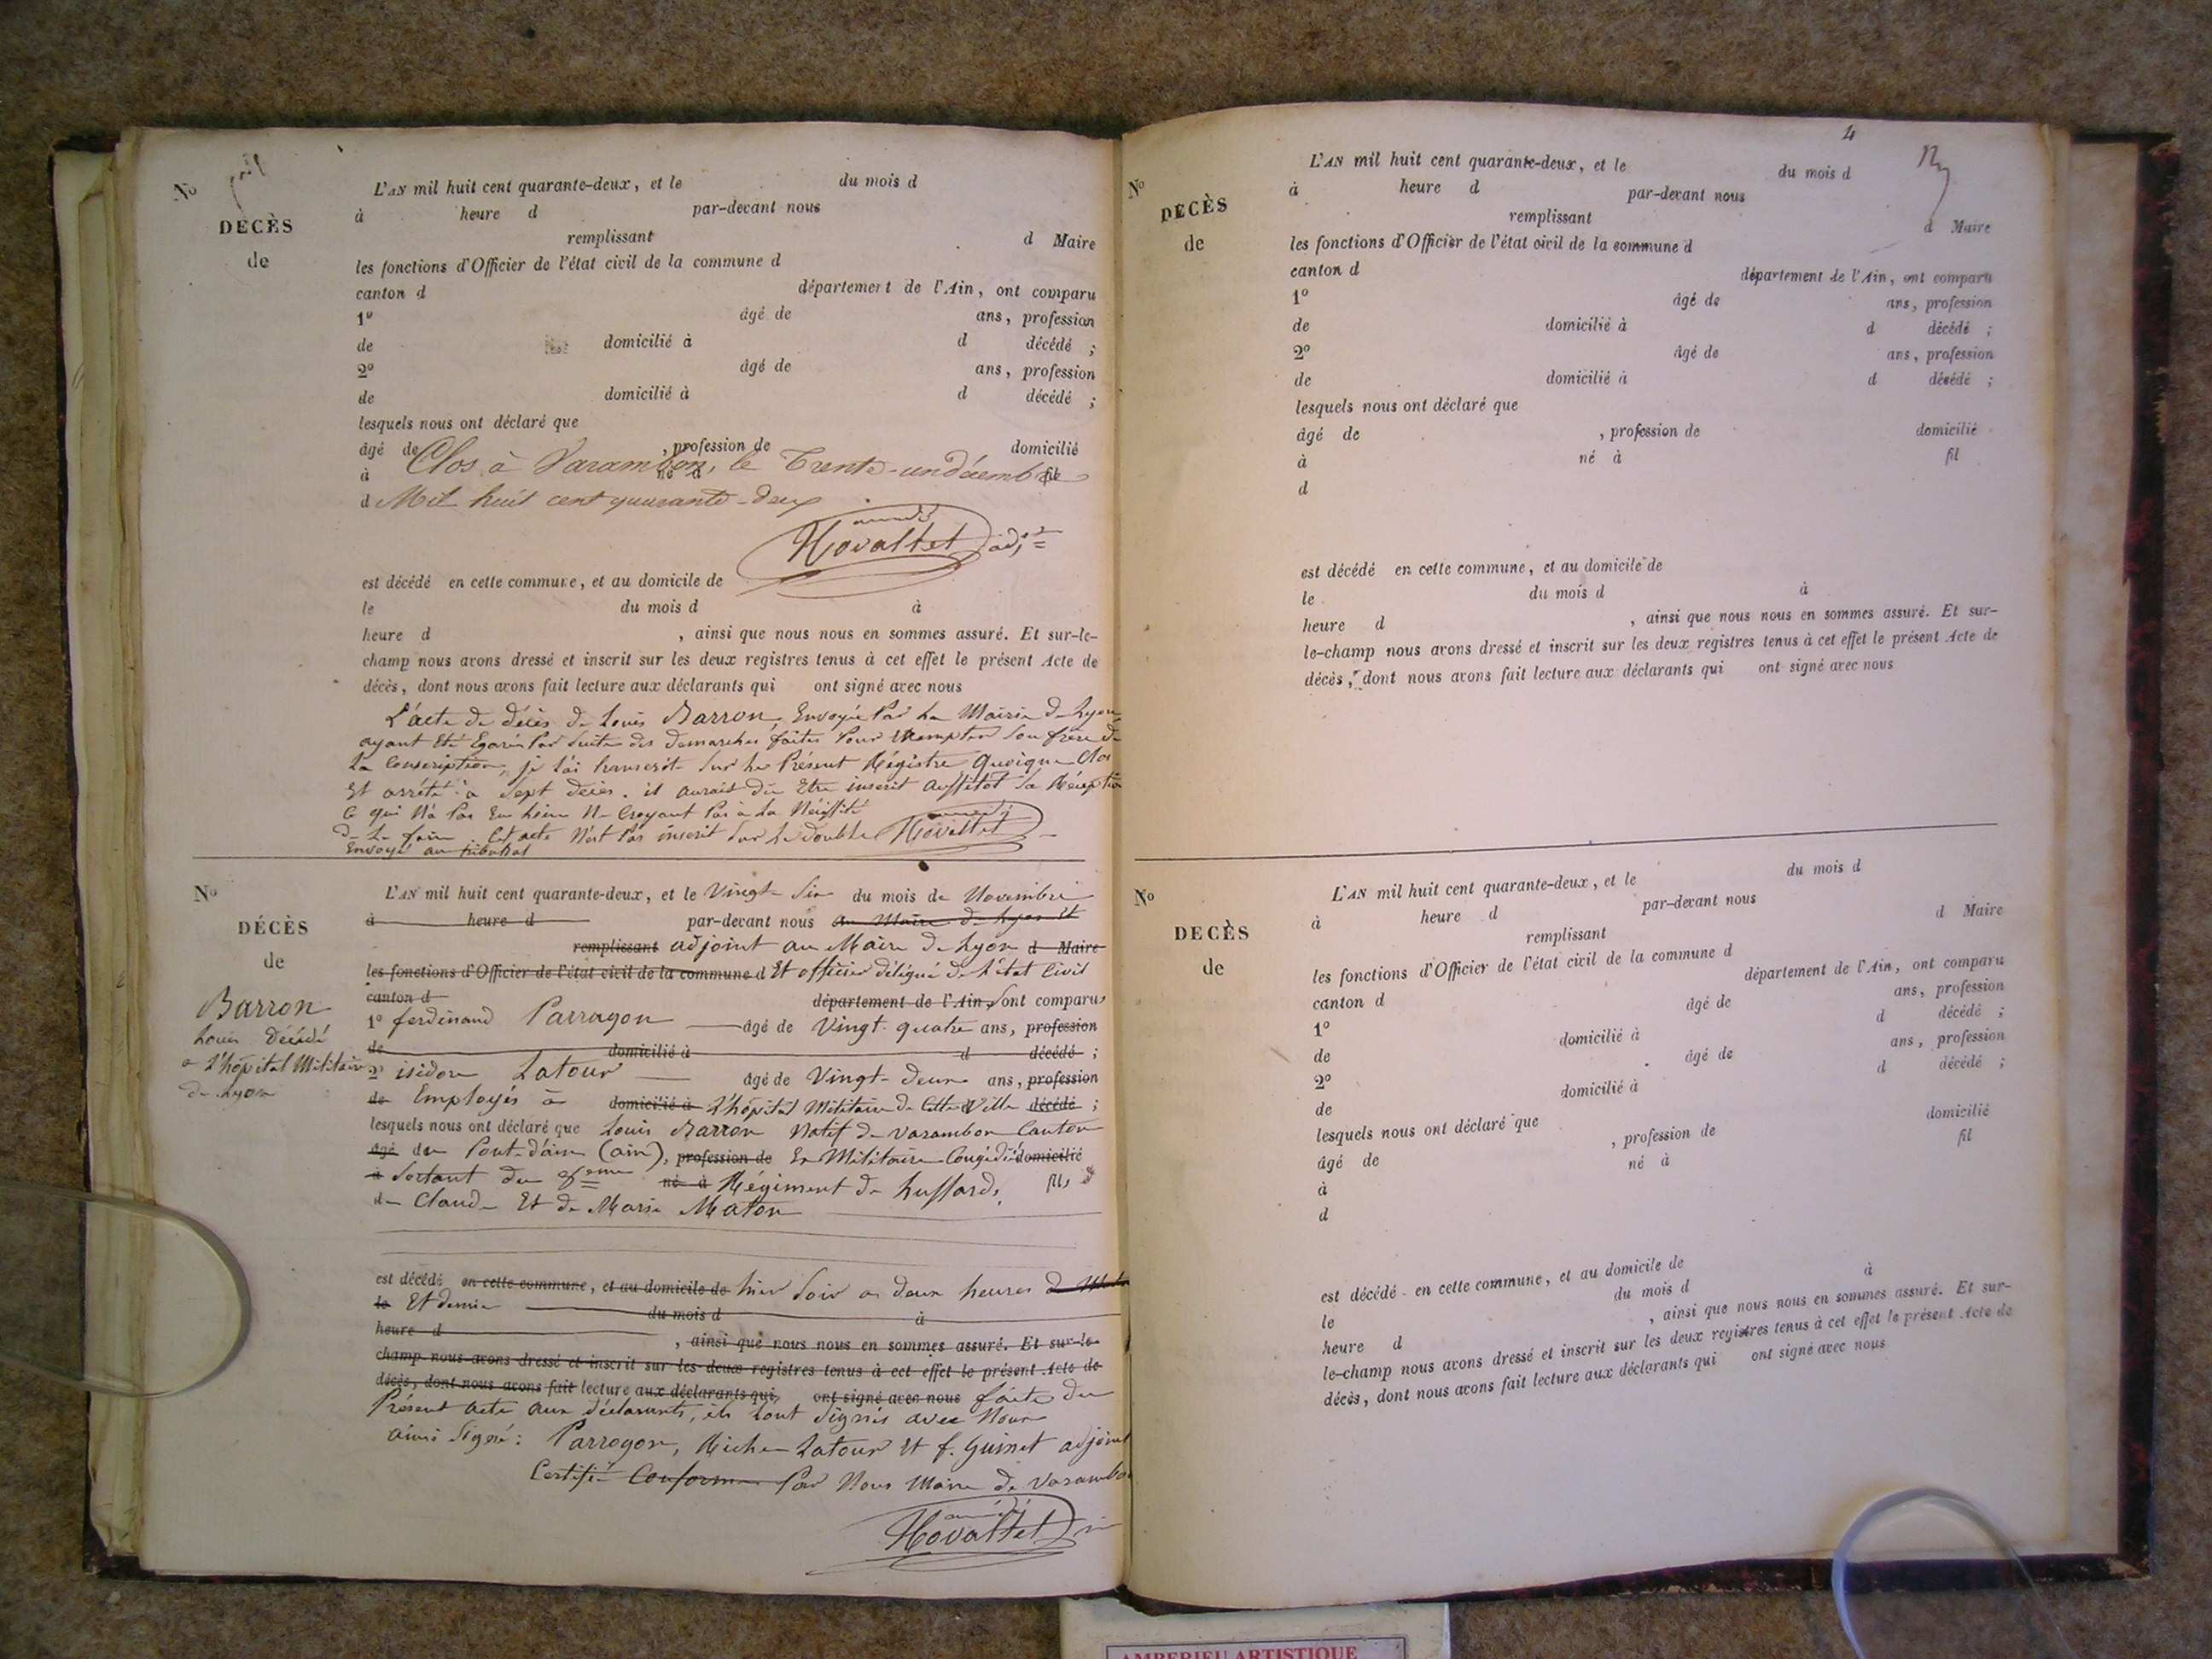 No
DECÈS
de
L'AN mil huit cent quarante-deux, et le du mois d
à heure d par-devant nous
remplissant d Maire
les fonctions d'Officier de l'état civil de la commune d
canton d département de l'Ain, ont comparu
1º âgé de ans, profession
de domicilié à d décédé ;
2º âgé de ans, profession
de domicilié à d décédé ;
lesquels nous ont déclaré que
âgé de , profession de domicilié
à né à fil
d
Clos à Varambon, le Trente-un décembre
Mil huit cent quarante-deux
Hovattet adj
est décédé en cette commune, et au domicile de
le du mois d à
heure d , ainsi que nous nous en sommes assuré. Et sur-le-
champ nous avons dressé et inscrit sur les deux registres tenus à cet effet le présent Acte de
décès, dont nous avons fait lecture aux déclarants qui ont signé avec nous
L'acte de décès de Louis Barron, Envoyé Par La Mairie de Lyon
ayant Eté Egaré Par Suite des demarches faites Pour Exempter Son frère de
La Conscription, je l'ai transcrit Sur Le Présent Régistre Quoique Clos
Et arrêté à Sept décès. il aurait dû Etre inscrit aussitôt Sa Réception
Ce qui N'a Pas Eu Lieu Ne Croyant Pas à La Néssité
de Le faire. Cet acte N'est Pas inscrit Sur Le double
Envoyé au tribunal
Hovattet
No
DÉCÈS
de
Barron
Louis Décédé
a L'hôpital Militaire
de Lyon
L'AN mil huit cent quarante-deux, et le Vingt Six du mois de Novembre
à heure d par-devant nous au Maire de Lyon et
remplissant adjoint au Maire de Lyon d Maire
les fonctions d'Officier de l'état civil de la commune d Et officier délégué de L'état Civil
canton d département de l'Ain, Sont comparus
1º ferdinand Parragon âgé de Vingt-quatre ans, profession
de domicilié à d décédé ;
2º isidore Latour âgé de Vingt-deux ans, profession
de Employés à domicilié à L'hôpital Militaire de Cette Ville décédé ;
lesquels nous ont déclaré que Louis Barron Natif de Varambon Canton
âgé de Pont-d'ain (ain), profession de Ex Militaire Congédié domicilié
à Sortant du 8eme né à Régiment de hussards, fils
de Claude Et de Marie Maton
est décédé en cette commune, et au domicile de hier Soir a deux heures
le Et demie du mois d à
heure d , ainsi que nous nous en sommes assuré. Et sur-le-
champ nous avons dressé et inscrit sur les deux registres tenus à cet effet le présent Acte de
décès, dont nous avons fait lecture aux déclarants qui ont signé avec nous faite du
Présent acte aux déclarants, ils Sont Signés avec Nous
ainsi Signé : Parragon, Latour Et f. Guinet adjoint
Certifié Conforme Par Nous Maire de Varambon
Hovattet
4
No
DECÈS
de
L'AN mil huit cent quarante-deux, et le du mois d
à heure d par-devant nous
remplissant d Maire
les fonctions d'Officier de l'état civil de la commune d
canton d département de l'Ain, ont comparu
1º âgé de ans, profession
de domicilié à d décédé ;
2º âgé de ans, profession
de domicilié à d décédé ;
lesquels nous ont déclaré que
âgé de , profession de domicilié
à né à fil
d
est décédé en cette commune, et au domicile de
le du mois d à
heure d , ainsi que nous nous en sommes assuré. Et sur-
le-champ nous avons dressé et inscrit sur les deux registres tenus à cet effet le présent Acte de
décès, dont nous avons fait lecture aux déclarants qui ont signé avec nous
No
DECÈS
de
L'AN mil huit cent quarante-deux, et le du mois d
à heure d par-devant nous
remplissant d Maire
les fonctions d'Officier de l'état civil de la commune d
canton d département de l'Ain, ont comparu
1º âgé de ans, profession
de domicilié à d décédé ;
2º âgé de ans, profession
de domicilié à d décédé ;
lesquels nous ont déclaré que
âgé de , profession de domicilié
à né à fil
d
est décédé en cette commune, et au domicile de
le du mois d à
heure d , ainsi que nous nous en sommes assuré. Et sur-
le-champ nous avons dressé et inscrit sur les deux registres tenus à cet effet le présent Acte de
décès, dont nous avons fait lecture aux déclarants qui ont signé avec nous
AMBERIEU ARTISTIQUE